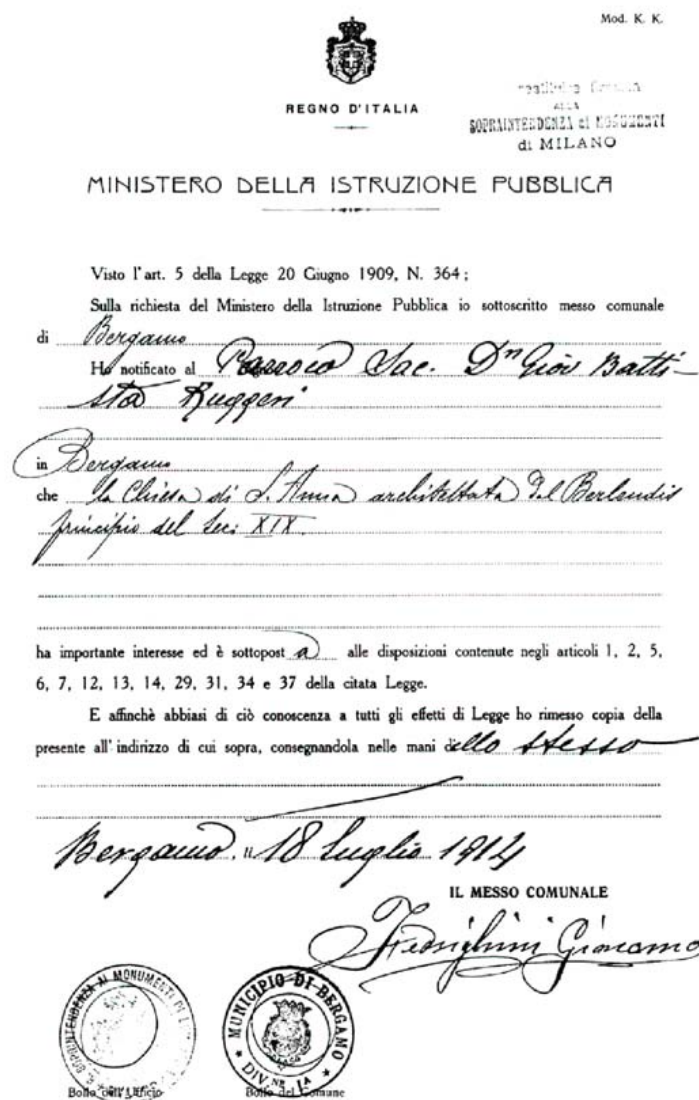 Mod. K. K.
REGNO D'ITALIA
ALLA
SOPRAINTENDENZA ai MONUMENTI
di MILANO
MINISTERO DELLA ISTRUZIONE PUBBLICA
Visto l'art. 5 della Legge 20 Giugno 1909, N. 364;
Sulla richiesta del Ministero della Istruzione Pubblica io sottoscritto messo comunale
di Bergamo
Ho notificato al Parroco Sac. Dn Giov Batti-
sta Ruggeri
in Bergamo
che la Chiesa di S. Anna architettata dal Berlendis
principio del Sec: XIX.
ha importante interesse ed è sottoposta alle disposizioni contenute negli articoli 1, 2, 5,
6, 7, 12, 13, 14, 29, 31, 34 e 37 della citata Legge.
E affinchè abbiasi di ciò conoscenza a tutti gli effetti di Legge ho rimesso copia della
presente all'indirizzo di cui sopra, consegnandola nelle mani dello stesso
Bergamo, li 18 Luglio 1914
IL MESSO COMUNALE
Fedrighini Giacomo
SOPRINTENDENZA AI MONUMENTI
MUNICIPIO DI BERGAMO
DIV.NE IA
Bollo dell'Ufficio
Bollo del Comune